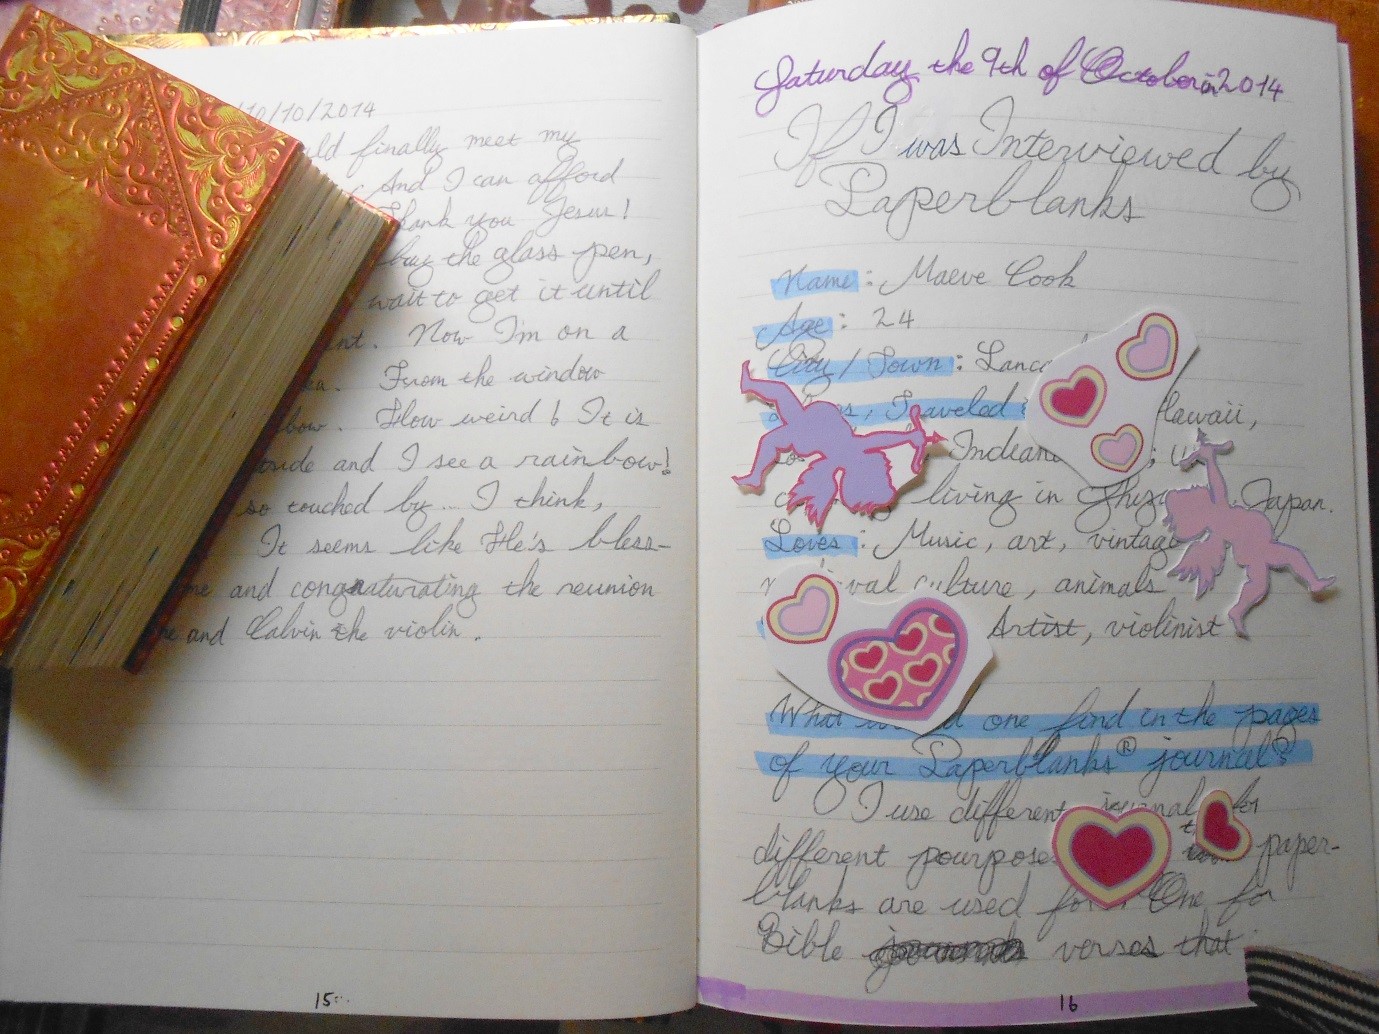 /10/10/2014
finally meet my
And I can afford
Thank you Jesus!
buy the glass pen,
wait to get it until
Now I'm on a
From the window
How weird! It is
and I see a rainbow!
so touched by... I think,
It seems like He's bless-
me and congnaturating the reunion
and Calvin the violin.
15
Saturday the 9th of October in 2014
If I was Interviewed by
Paperblanks
Name: Maeve Cook
Age: 24
City / Town: Lanca
Traveled Hawaii,
Indian
living in Japan.
Loves: Music, art, vintag
culture, animals
Artist, violinist
What one find in the pages
of your Paperblanks® journal?
I use different journal for
different pourpose paper-
blanks are used for. One for
Bible verses that
16